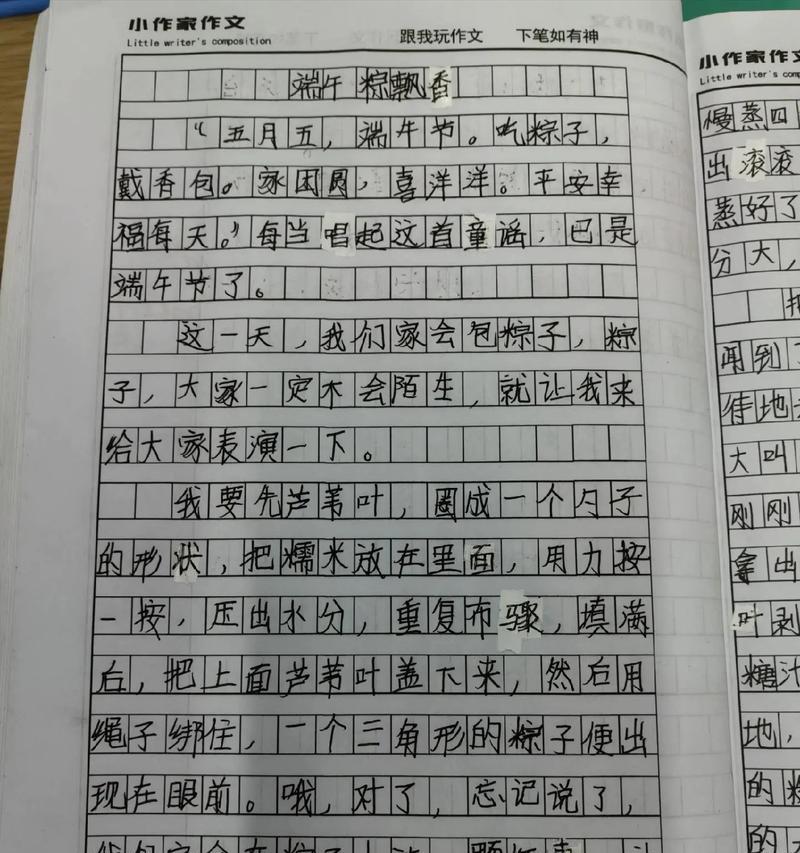 小作家作文
Little writer's composition
跟我玩作文 下笔如有神
端午粽飘香
“五月五，端午节。吃粽子，
戴香包。家团圆，喜洋洋。平安幸
福每天。”每当唱起这首童谣，已是
端午节了。
这一天，我们家会包粽子，粽
子，大家一定不会陌生，就让我来
给大家表演一下。
我要先芦苇叶，圈成一个勺子
的形状，把糯米放在里面，用力按
一按，压出水分，重复布骤，填满
后，把上面芦苇叶盖下来，然后用
绳子绑住，一个三角形的粽子便出
现在眼前。哦，对了，忘记说了，
小作家作文
Little writer's composition
慢蒸四
出滚滚
蒸好了
分大，
闻到了
待地
大叫
刚刚
拿出
叶剥
糖汁
地，
的
的